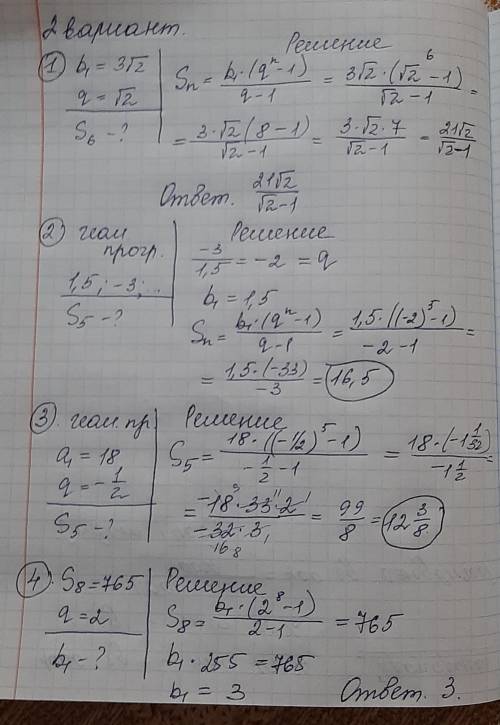 2 вариант.
Решение
① b₁ = 3√2
q = √2
S₆ - ?
Sₙ = b₁·(qⁿ-1)/(q-1) = 3√2·(√2⁶-1)/(√2-1) =
= 3·√2(8-1)/(√2-1) = 3·√2·7/(√2-1) = 21√2/(√2-1)
Ответ. 21√2/(√2-1)
② геом прогр.
1,5; -3; ...
S₅ - ?
Решение
-3/1,5 = -2 = q
b₁ = 1,5
Sₙ = b₁·(qⁿ-1)/(q-1) = 1,5·((-2)⁵-1)/(-2-1) =
= 1,5·(-33)/(-3) = 16,5
③ геом. пр
a₁ = 18
q = -1/2
S₅ - ?
Решение
S₅ = 18·((-1/2)⁵-1)/(-1/2-1) = 18·(-1 1/32)/(-1 1/2) =
= -18·33·2/(-32·3) = 99/8 = 12 3/8
④ S₈ = 765
q = 2
b₁ - ?
Решение
S₈ = b₁·(2⁸-1)/(2-1) = 765
b₁·255 = 765
b₁ = 3
Ответ. 3.